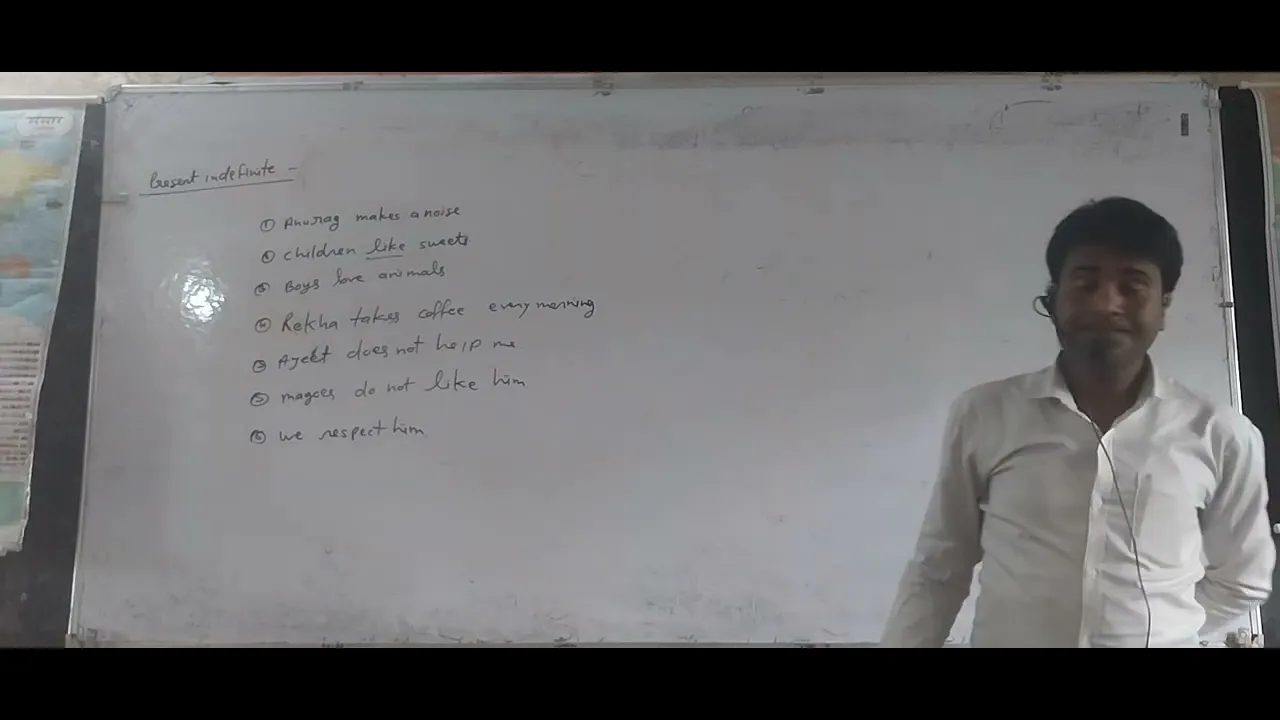 Present indefinite -
① Anurag makes a noise
② children like sweets
③ Boys love animals
④ Rekha takes coffee every morning
⑤ Ajeet does not help me
⑤ magoes do not like him
⑥ we respect him